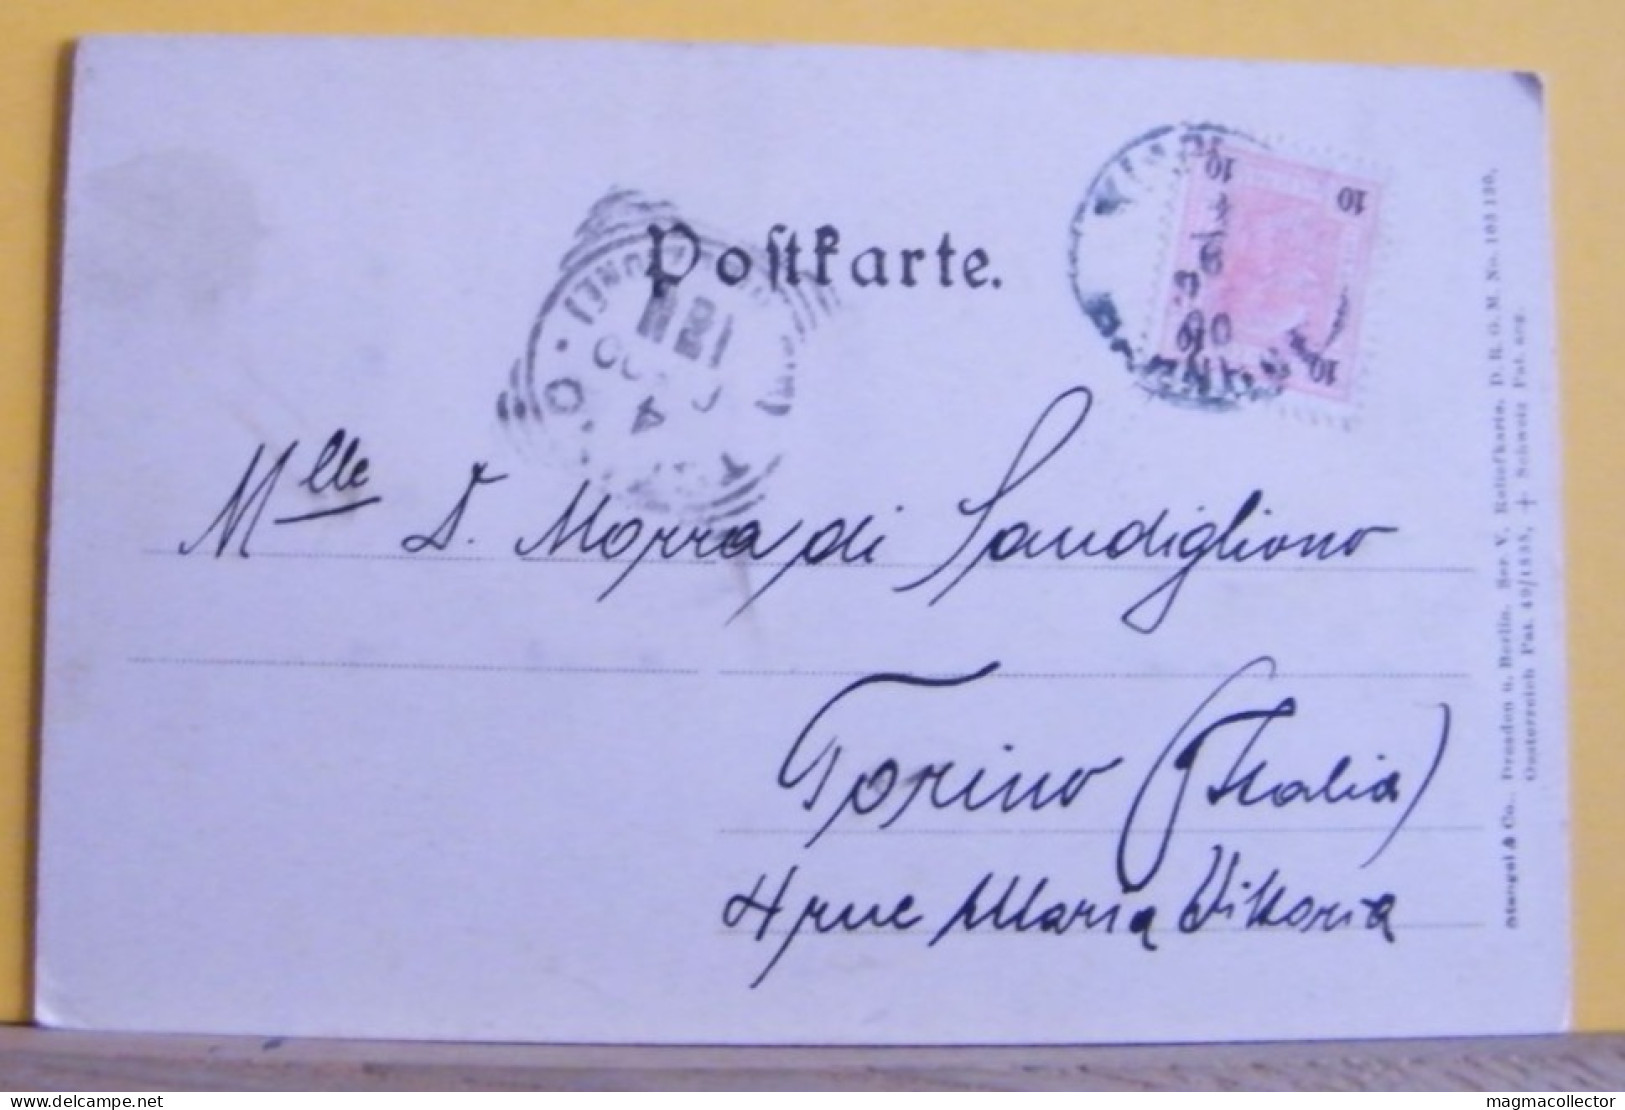 Postkarte.
10
10
10
Mlle D. Morra di Sandigliono
Torino (Italia)
4 rue Maria Vittoria
Stengel & Co., Dresden u. Berlin. Ser. V. Reliefkarte. D. R. G. M. No. 103 130.
Oesterreich Pat. 49/1535, + Schweiz Pat. 
magmacollector
delcampe.net